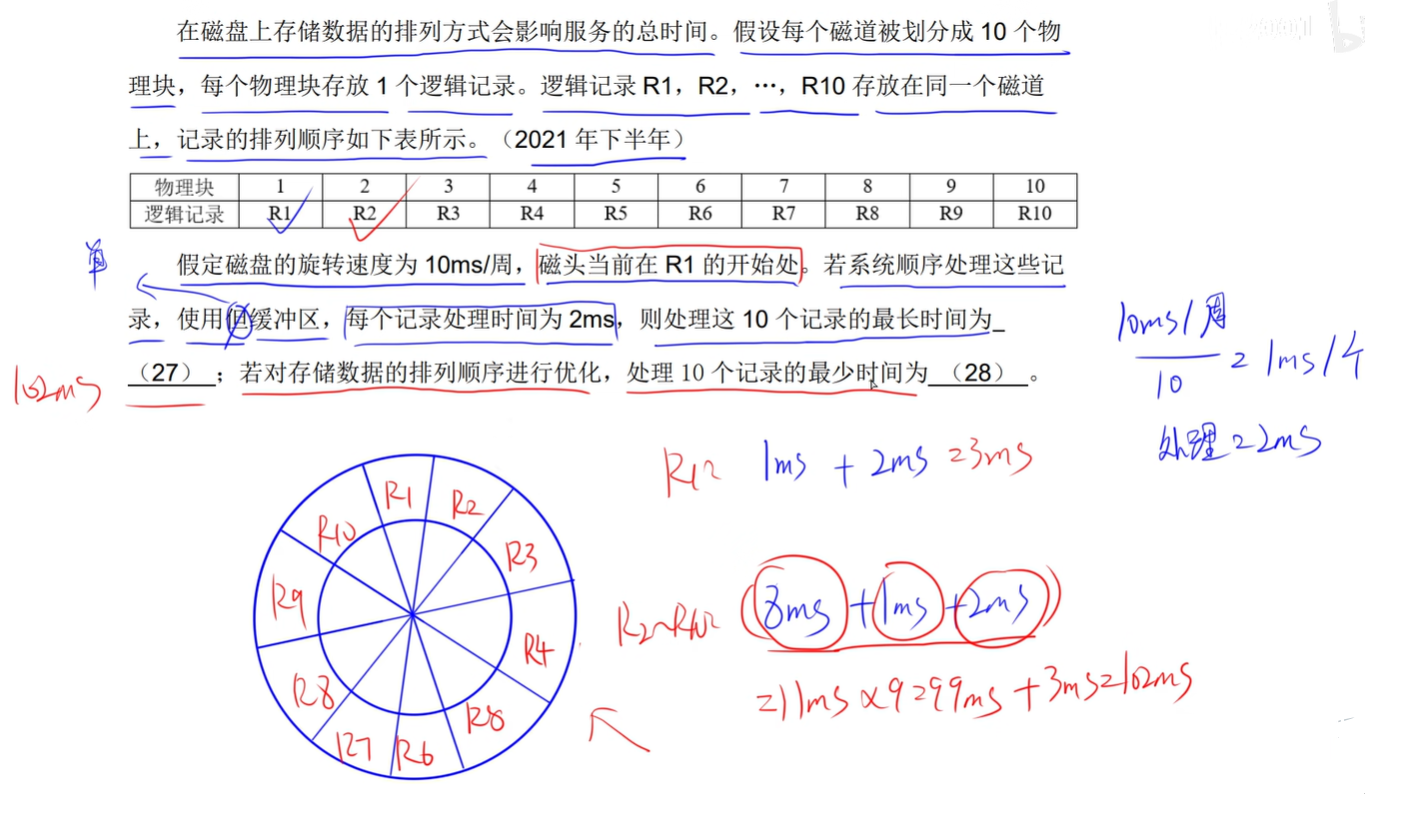 在磁盘上存储数据的排列方式会影响服务的总时间。假设每个磁道被划分成 10 个物
理块，每个物理块存放 1 个逻辑记录。逻辑记录 R1，R2，…，R10 存放在同一个磁道
上，记录的排列顺序如下表所示。（2021 年下半年）
物理块 1 2 3 4 5 6 7 8 9 10
逻辑记录 R1 R2 R3 R4 R5 R6 R7 R8 R9 R10
单
假定磁盘的旋转速度为 10ms/周，磁头当前在 R1 的开始处。若系统顺序处理这些记
录，使用但缓冲区，每个记录处理时间为 2ms，则处理这 10 个记录的最长时间为_
10ms/周
10 = 1ms/个
102ms
（27）；若对存储数据的排列顺序进行优化，处理 10 个记录的最少时间为（28）。
处理=2ms
R1= 1ms + 2ms =3ms
R1 R2 R3 R4 R8 R6 R7 R8 R9 R10
R2~R10= (8ms+1ms+2ms)
=11ms×9=99ms+3ms=102ms